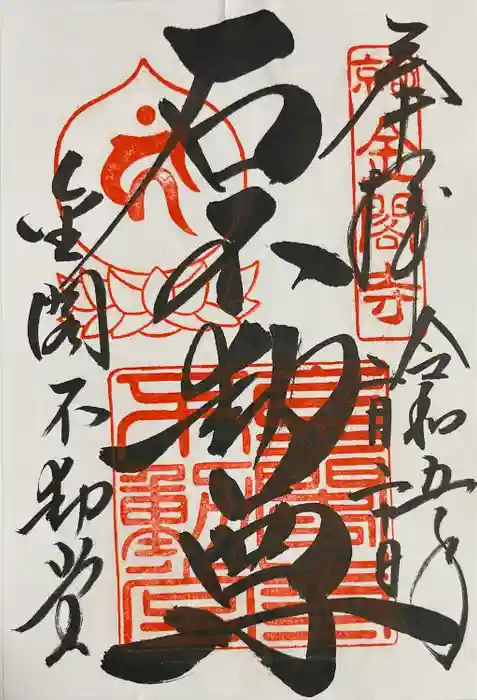 奉拝
令和五年
二月二十日
京都
金閣寺
石不動尊
金閣不動堂